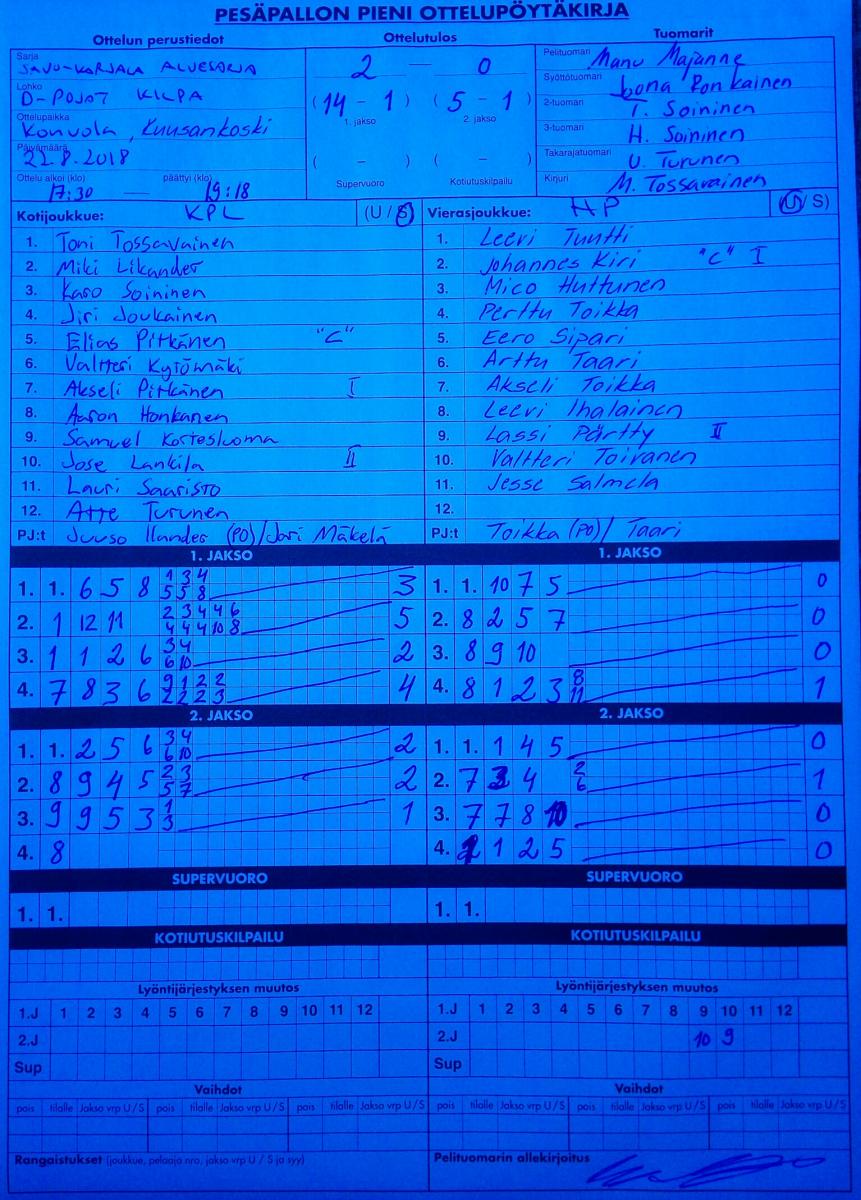 PESÄPALLON PIENI OTTELUPÖYTÄKIRJA
Ottelun perustiedot
Sarja
SAVO-KARJALA ALUESARJA
Lohko
D-POJAT KILPA
Ottelupaikka
Kouvola, Kuusankoski
Päivämäärä
22.8.2018
Ottelu alkoi (klo) päättyi (klo)
17:30 — 19:18
Ottelutulos
2 — 0
(14 - 1) (5 - 1)
1. jakso 2. jakso
( - ) ( - )
Supervuoro Kotiutuskilpailu
Tuomarit
Pelituomari Manu Majanne
Syöttötuomari Joona Ronkainen
2-tuomari T. Soininen
3-tuomari H. Soininen
Takarajatuomari U. Turunen
Kirjuri M. Tossavainen
Kotijoukkue: KPL (U / S)
1. Toni Tossavainen
2. Miki Likander
3. Karo Soininen
4. Jiri Joukainen
5. Elias Pitkänen "C"
6. Valtteri Kytömäki
7. Akseli Pitkänen I
8. Aaron Honkanen
9. Samuel Kortesluoma
10. Jose Lankila II
11. Lauri Saaristo
12. Atte Turunen
PJ:t Juuso Ilander (PO)/Jari Mäkelä
Vierasjoukkue: HP (U / S)
1. Leevi Tuutti
2. Johannes Kiri "C" I
3. Mico Huttunen
4. Perttu Toikka
5. Eero Sipari
6. Arttu Taari
7. Akseli Toikka
8. Leevi Ihalainen
9. Lassi Pärtty II
10. Valtteri Toivanen
11. Jesse Salmela
12.
PJ:t Toikka (PO) / Taari
1. JAKSO
1. 1. 6 5 8 1 3 4 3
5 5 8
2. 1 12 11 2 3 4 4 6 5
4 4 4 10 8
3. 1 1 2 6 3 4 2
6 10
4. 7 8 3 6 9 1 2 2 4
2 2 2 3
1. JAKSO
1. 1. 10 7 5 0
2. 8 2 5 7 0
3. 8 9 10 0
4. 8 1 2 3 8 1
11
2. JAKSO
1. 1. 2 5 6 3 4 2
6 10
2. 8 9 4 5 2 3 2
5 7
3. 9 9 5 3 1 1
3
4. 8
2. JAKSO
1. 1. 1 4 5 0
2. 7 3 4 2 1
6
3. 7 7 8 10 0
4. 1 2 5 0
SUPERVUORO
1. 1.
SUPERVUORO
1. 1.
KOTIUTUSKILPAILU
KOTIUTUSKILPAILU
Lyöntijärjestyksen muutos
1.J 1 2 3 4 5 6 7 8 9 10 11 12
2.J
Sup
Lyöntijärjestyksen muutos
1.J 1 2 3 4 5 6 7 8 9 10 11 12
2.J 10 9
Sup
Vaihdot
pois tilalle Jakso vrp U / S pois tilalle Jakso vrp U / S pois tilalle Jakso vrp U / S
Vaihdot
pois tilalle Jakso vrp U / S pois tilalle Jakso vrp U / S pois tilalle Jakso vrp U / S
Rangaistukset (joukkue, pelaaja nro, jakso vrp U / S ja syy)
Pelituomarin allekirjoitus